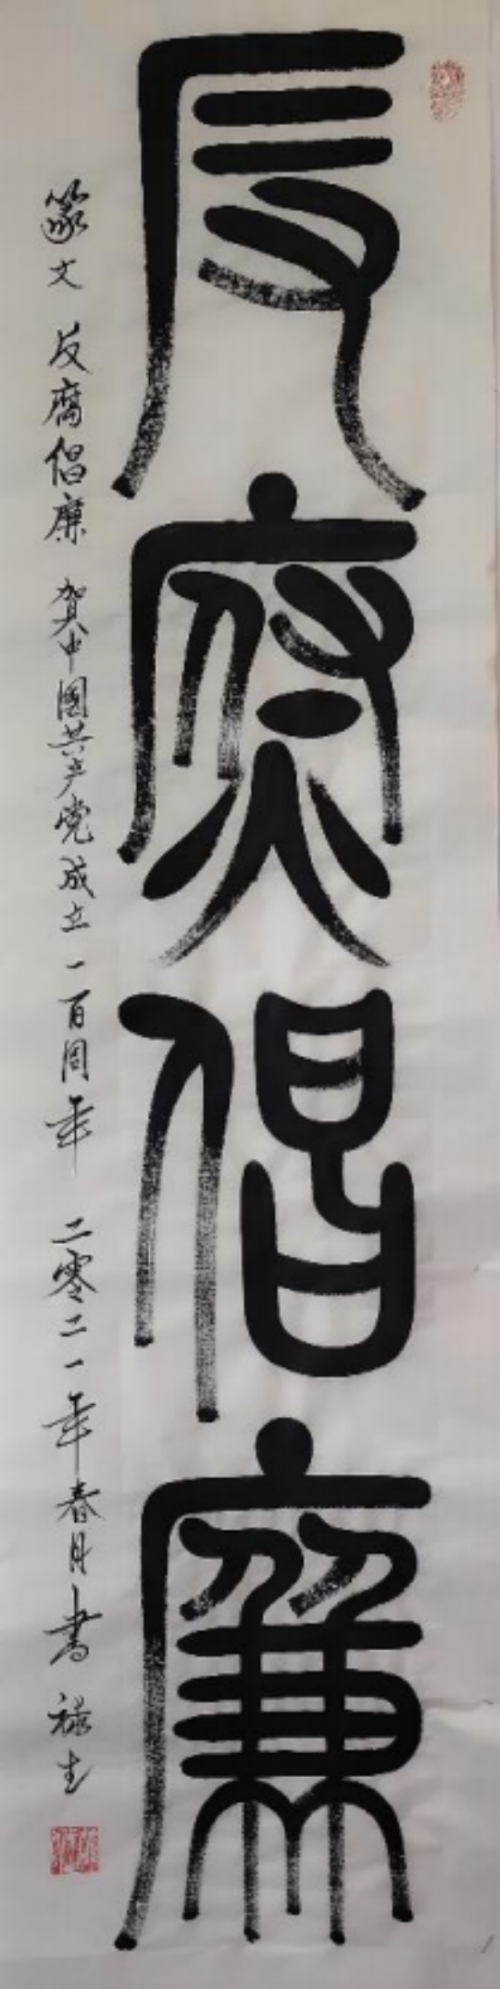 反腐倡廉
篆文 反腐倡廉 贺中国共产党成立一百周年 二零二一年春月书 禄生